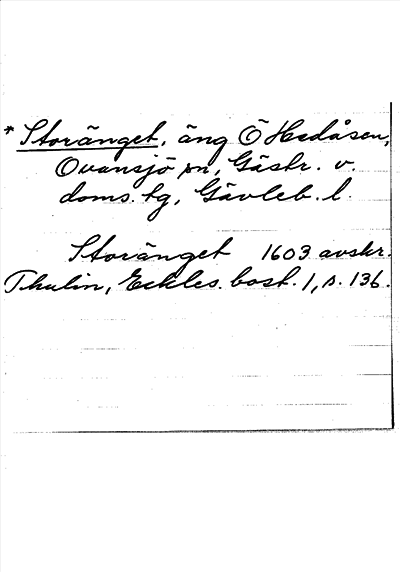 * Storänget, äng Ö Hedåsen,
Ovansjö sn, Gästr. v.
doms. tg, Gävleb. l.
Storänget 1603 avskr.
Thulin, Eckles. bost. 1, s. 136.